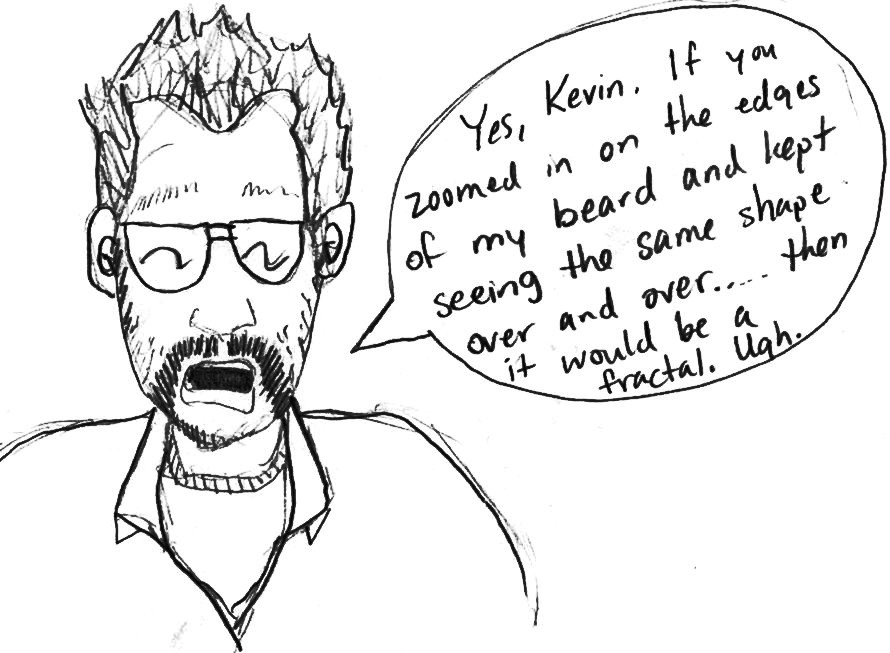 Yes, Kevin. If you
zoomed in on the edges
of my beard and kept
seeing the same shape
over and over..... then
it would be a
fractal. Ugh.